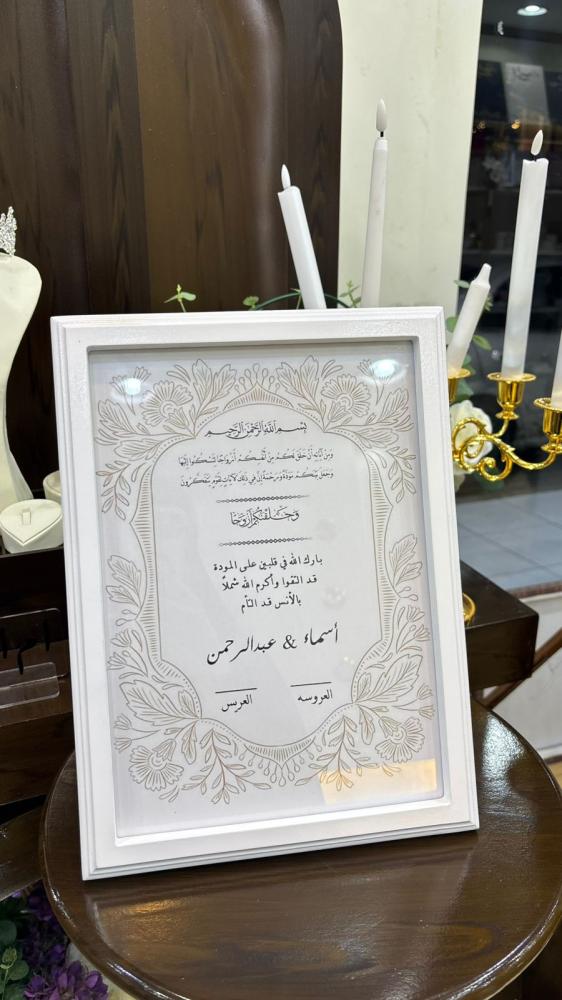 بسم الله الرحمن الرحيم
وَمِنْ آيَاتِهِ أَنْ خَلَقَ لَكُم مِّنْ أَنفُسِكُمْ أَزْوَاجًا لِّتَسْكُنُوا إِلَيْهَا
وَجَعَلَ بَيْنَكُم مَّوَدَّةً وَرَحْمَةً إِنَّ فِي ذَٰلِكَ لَآيَاتٍ لِّقَوْمٍ يَتَفَكَّرُونَ
وَخَلَقْنَاكُمْ أَزْوَاجًا
بارك الله في قلبين على المودة
قد التقوا وأكرم الله شملًا
بالأنس قد التأم
أسماء & عبدالرحمن
العروسه العريس